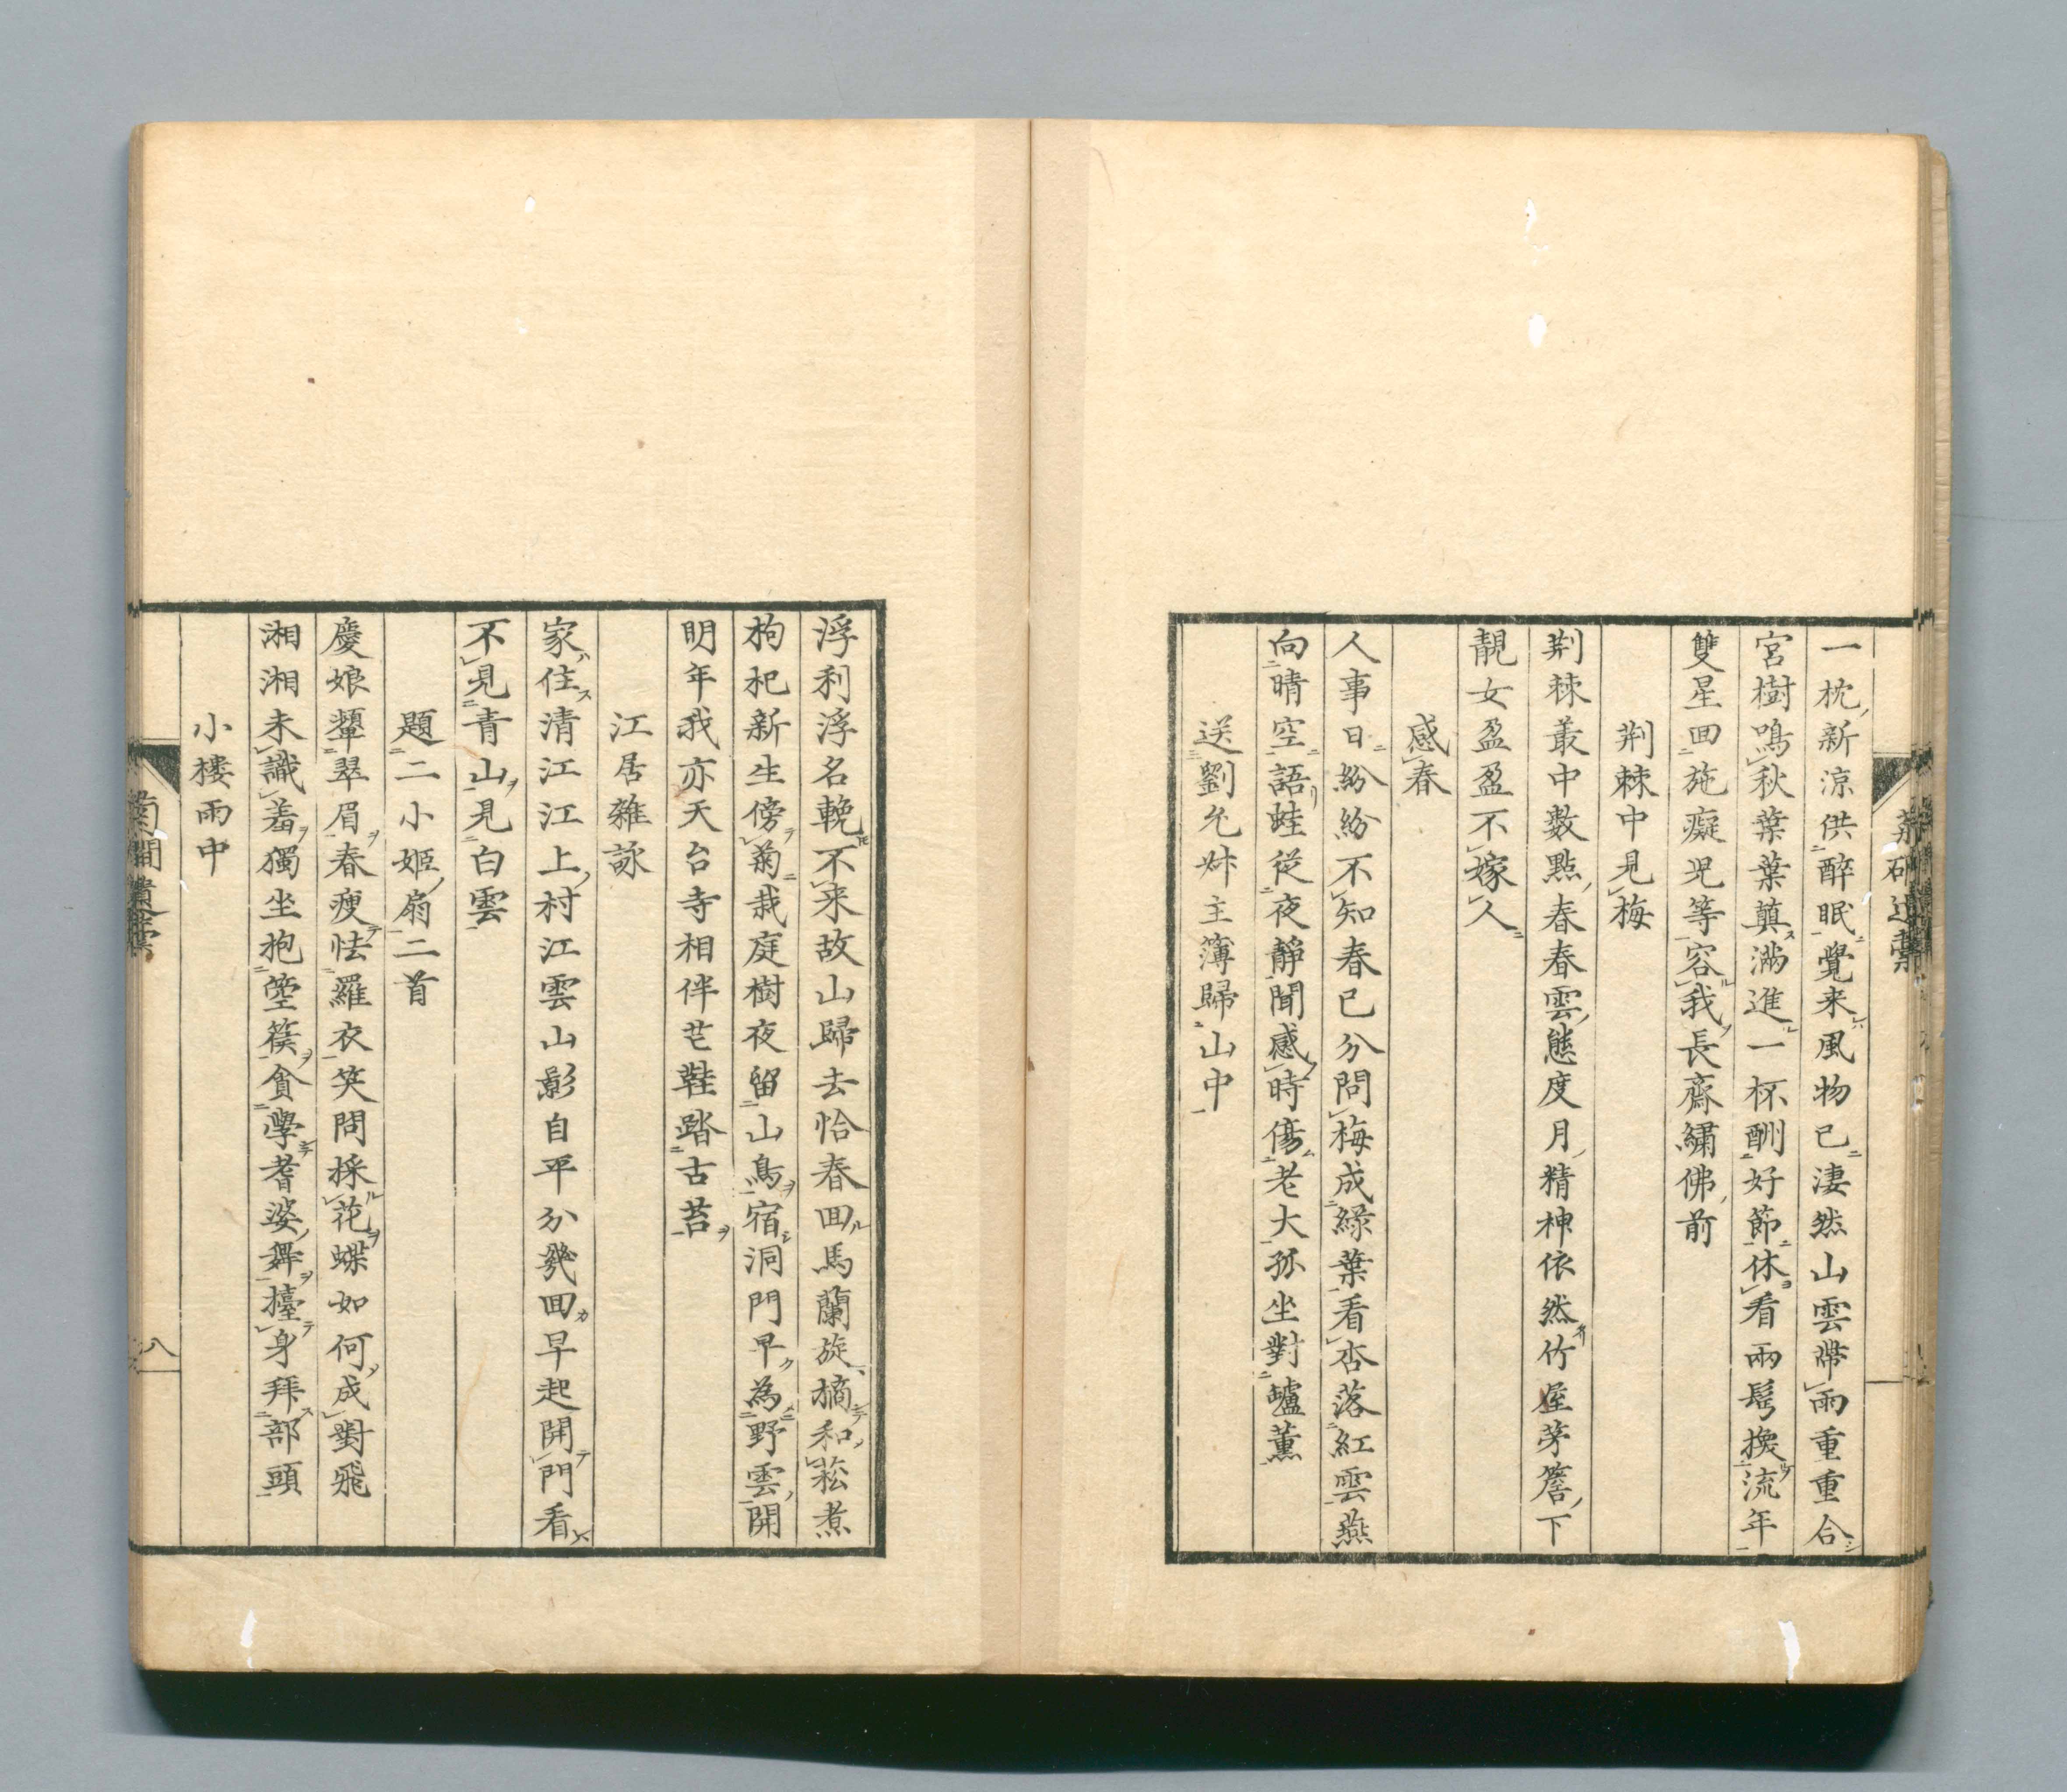 一枕新涼供醉眠覺来風物已淒然山雲帶雨重重合
宮樹鳴秋葉葉蔫滿進一杯酬好節休看兩髩換流年
雙星回施癡児等容我長齋繡佛前
荆棘中見梅
荆棘叢中数點春春雲態度月精神依然竹屋茅簷下
靚女盈盈不嫁人
感春
人事日紛紛不知春已分問梅成緑葉看杏落紅雲燕
向晴空語蛙從夜靜聞感時傷老大孤坐對爐薫
送劉允叔主簿歸山中
浮利浮名輓不来故山歸去恰春回馬蘭旋摘和菘煮
枸杞新生傍菊栽庭樹夜留山鳥宿洞門早為野雲開
明年我亦天台寺相伴芒鞋踏古苔
江居雜詠
家住清江江上村江雲山影自平分幾回早起開門看
不見青山見白雲
題二小姬扇二首
慶娘顰翠眉春瘦怯羅衣笑問採花蝶如何成對飛
湘湘未識羞獨坐抱箜篌貪學耆婆舞擡身拜部頭
小楼雨中
菊礀遺稾
八